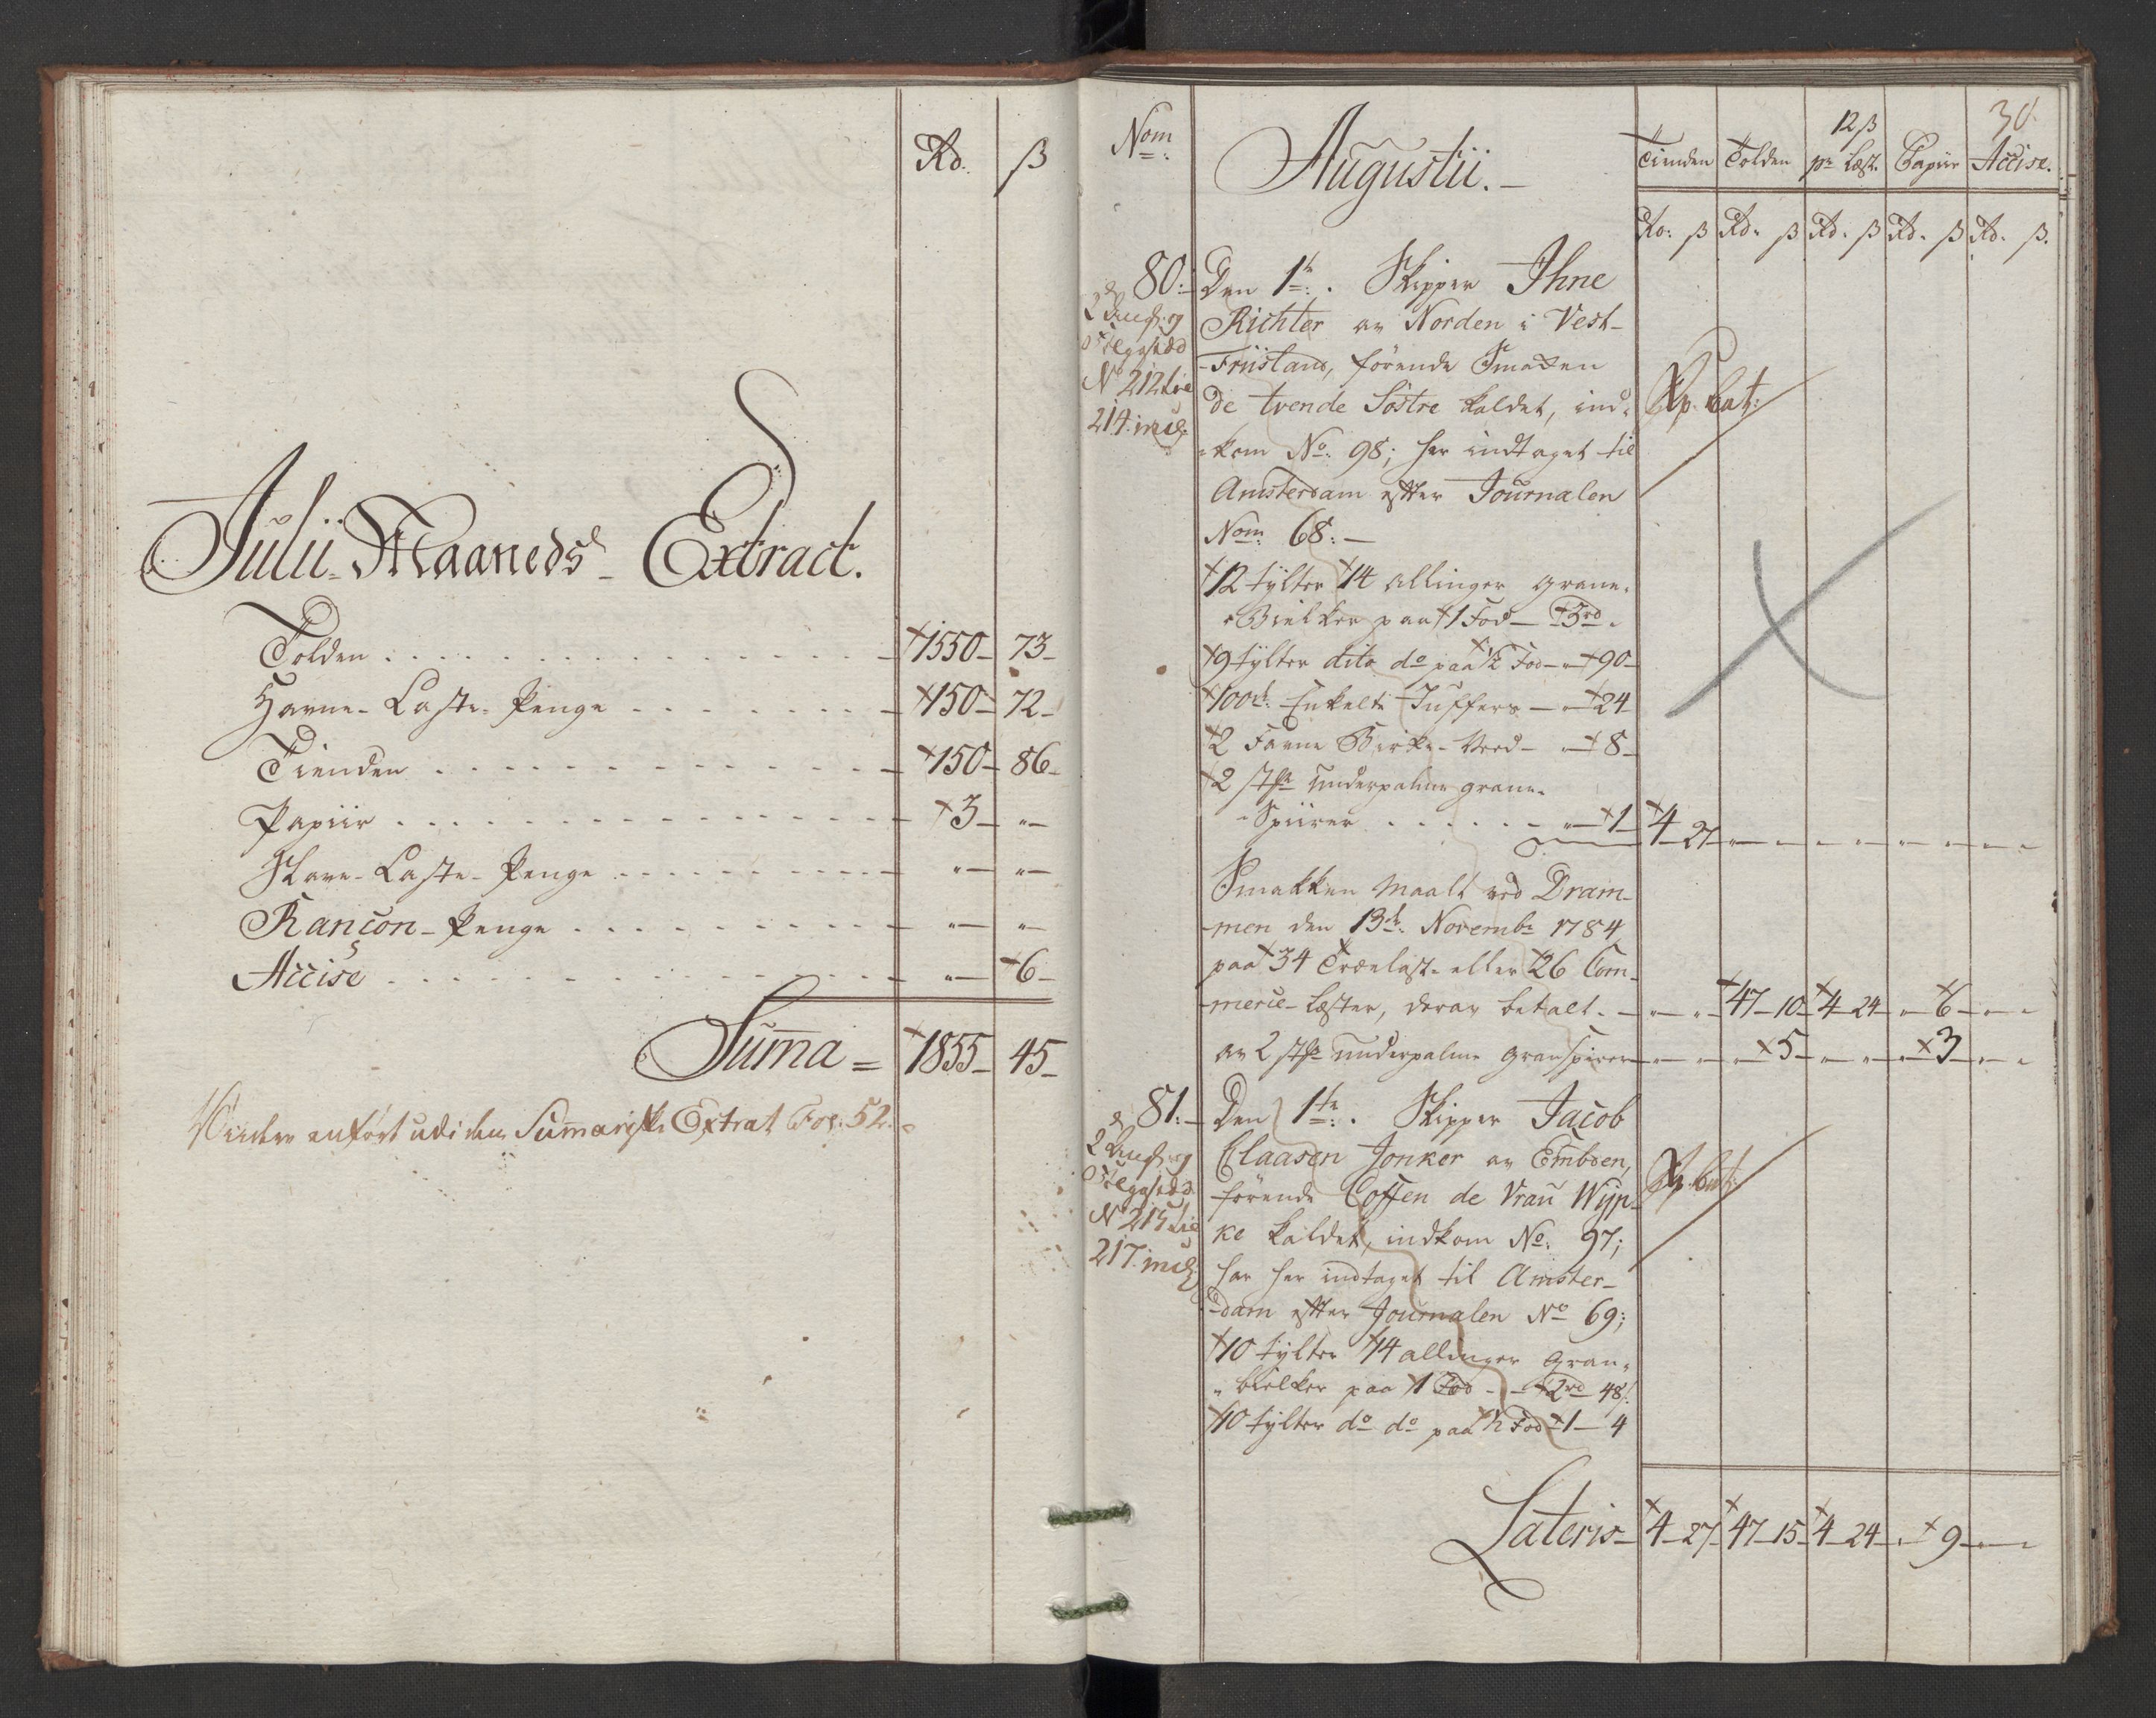 Rd. ß
Julii Maaneds Extract.
Tolden . . . 1550 - 73 -
Havne-Laste-Penge . . . 150 - 72 -
Tienden . . . 150 - 86 -
Papiir . . . 3 - " -
Slave-Laste-Penge . . . " - " -
Rançon-Penge . . . " - " -
Accise . . . " - 6 -
Suma = 1855 - 45 -
anført udi den Sumariske Extrat Fol: 52.
Nom
Augustii. -
Tienden Tolden 12 ß pr Læst. Papiir Accise.
30.
Rd. ß Rd. ß Rd. ß Rd. ß Rd. ß.
80. Den 1te. Skipper Ihne
Richter av Norden i Vest-
-Friisland, førende Smakken
No 212 til
214. incl.
de tvende Søstre kaldet, ind-
-kom No. 98; har indtaget til
Amsterdam efter Journalen
Nom. 68. -
12 tylter 14 allinger grane-
-Bielker paa 1 Fod - 3 rd.
9 tylter dito do paa ½ Fod - " 90 -
100 st. Enkelte Juffers - " 24
2 Favne Birke-Veed - " 8 -
2 stk underpalme grane-
-Spiirer . . . " 1 - 4 - 27
Smakken maalt ved Dram-
-men den 13de Novembr 1784
paa 34 Trælæst. eller 26 Com-
-merce-Læster, derav betalt. - 47 - 10 - 4 - 24 - " 6 -
av 2 stk underpalme granspirer - " 5 - " 3 -
81. - Den 1te. Skipper Jacob
Claasen Jonker av Embden,
førende Coffen de Vrau Wyp-
No 215 til
217. incl.
ke kaldet, indkom No. 97;
har her indtaget til Amster-
-dam efter Journalen No 69;
10 tylter 14 allinger Gran-
-bielker paa 1 Fod - 2 rd 48 ß.
10 tylter do do paa ½ Fod - 1 - 4
Lateris - 4 - 27 - 47 - 15 - 4 - 24 - " 9 -